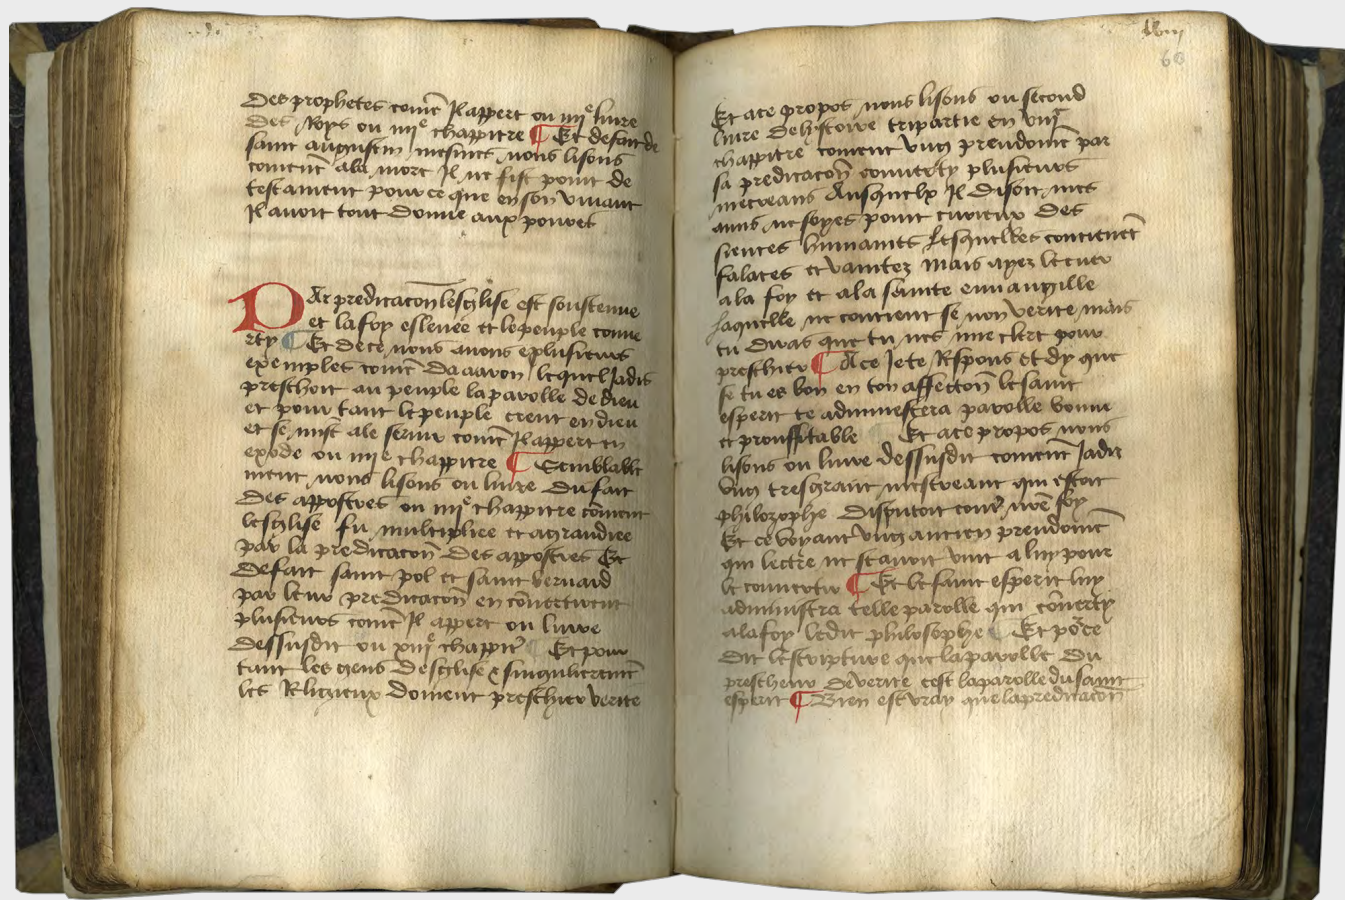 Des prophetes com̄e Il appert ou iiiie liure
des Roys ou iiiie chappitre ¶ Et de fait de
saint augustin mesmes nous lisons
coment ala mort Il ne fist point de
testament pour ce que en son viuant
Il auoit tout donne aux poures
PAr predicacōn lesglise est soustenue
et la foy esleuee et le peuple conue
rty ¶ Et de ce nous auons plusieurs
exemples com̄e daaron lequel Jadis
preschoit au peuple la parolle de dieu
et pour tant le peuple creut en dieu
et se mist a le seruir com̄e Il appert en
exode ou iiiie chappitre ¶ Semblable
ment nous lisons ou liure du fait
des appostres ou iiiie chappitre cōment
lesglise fu multipliee et agrandiee
par la predicacōn des appostres Et
de fait saint pol et saint bernard
par leur predicacōn en cōuertirent
plusieurs com̄e Il appert ou liure
dessusdit ou xiiie chappitr̄e ¶ Et pour
tant les gens desglise & singulierem̄t
les Religieux doiuent preschier verite
lxiij
60
Et a ce propos nous lisons ou second
liure de histoire tripartie en viiie
chappitre coment vng preudom̄e par
sa predicacōn conuerty plusieurs
mecreans Ausquelx Il disoit mes
amis ne soyes point curieux des
siences humaines lesquelles contienēt
falaces et vanitez mais ayez le cuer
a la foy et a la sainte euuangille
laquelle ne contient se non verite mais
tu diras que tu nes mie clerc pour
preschier ¶ A ce Je te Respons et dy que
se tu es bon en ton affectōn le saint
esperit te administera parolle bonne
et prouffitable ¶ Et a ce propos nous
lisons ou liure dessusdit coment Jadis
vng tresgrant mescreant qui estoit
philozophe disputoit contr̄ nr̄e foy
Et ce voyant vng ancien preudom̄e
qui lectr̄e ne scauoit vint a luy pour
le conuertir ¶ Et le saint esperit luy
administra telle parolle qui cōuerty
a la foy ledit philosophe ¶ Et po͛ce
dit lescripture que la parolle du
prescheur de verite cest la parolle du saint
esperit ¶ Bien est vray que la predicacōn